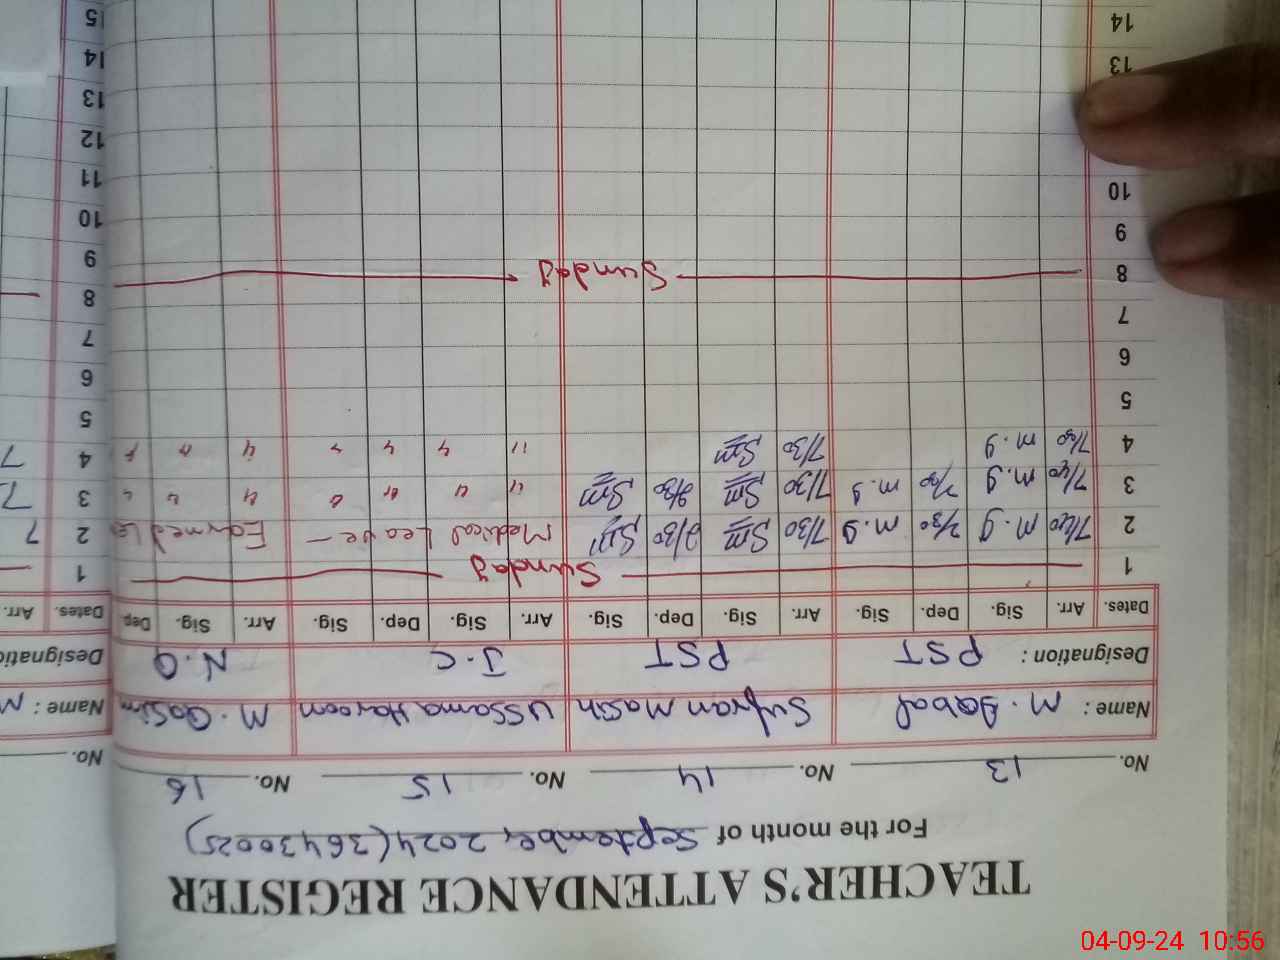 TEACHER'S ATTENDANCE REGISTER
For the month of September, 2024 (36430025)
No. 13 No. 14 No. 15 No. 16 No.
Name : M. Iqbal Sufyan Masih Ussama Haroon M. Qasim Name : M
Designation : PST PST J.C N.Q Designatio
Dates. Arr. Sig. Dep. Sig. Arr. Sig. Dep. Sig. Arr. Sig. Dep. Sig. Arr. Sig. Dep Dates. Arr.
1 Sunday 1
2 7/20 m.g 2/30 m.g 7/30 Sm 2/30 Sm Medical Leave - Earned Le 2 7
3 7/20 m.g m.g 7/30 Sm 2/30 Sm " " " " " " " 3 7
4 7/20 m.g 7/30 Sm " " " " " " " 4 7
5 5
6 6
7 7
8 Sunday 8
9 9
10 10
11
12
13 13
14 14
15
04-09-24 10:56